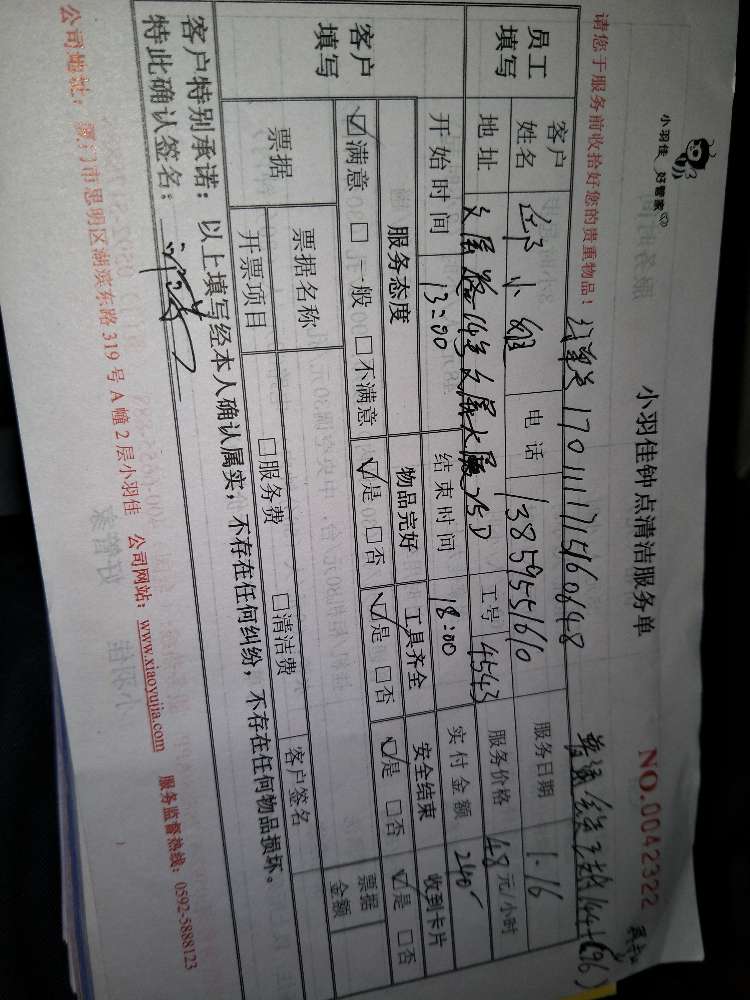 小羽佳 好管家
小羽佳钟点清洁服务单
NO.0042322
请您于服务前收拾好您的贵重物品！
170111715460648
员工填写
客户姓名 小姐 电话 13859551610 服务日期 1.16
地址 文屏路14号文屏大厦25D 工号 4543 服务价格 48元/小时
开始时间 13:00 结束时间 18:00 实付金额 240
客户填写
服务态度 物品完好 工具齐全 安全结束 收到卡片
☑满意 □一般 □不满意 ☑是 □否 ☑是 □否 ☑是 □否 ☑是 □否
票据 票据名称 □服务费 □清洁费 客户签名 票据金额
开票项目
客户特别承诺：以上填写经本人确认属实，不存在任何纠纷，不存在任何物品损坏。
特此确认签名：
公司地址：厦门市思明区湖滨东路319号A幢2层小羽佳 公司网站：www.xiaoyujia.com 服务监督热线：0592-5888123